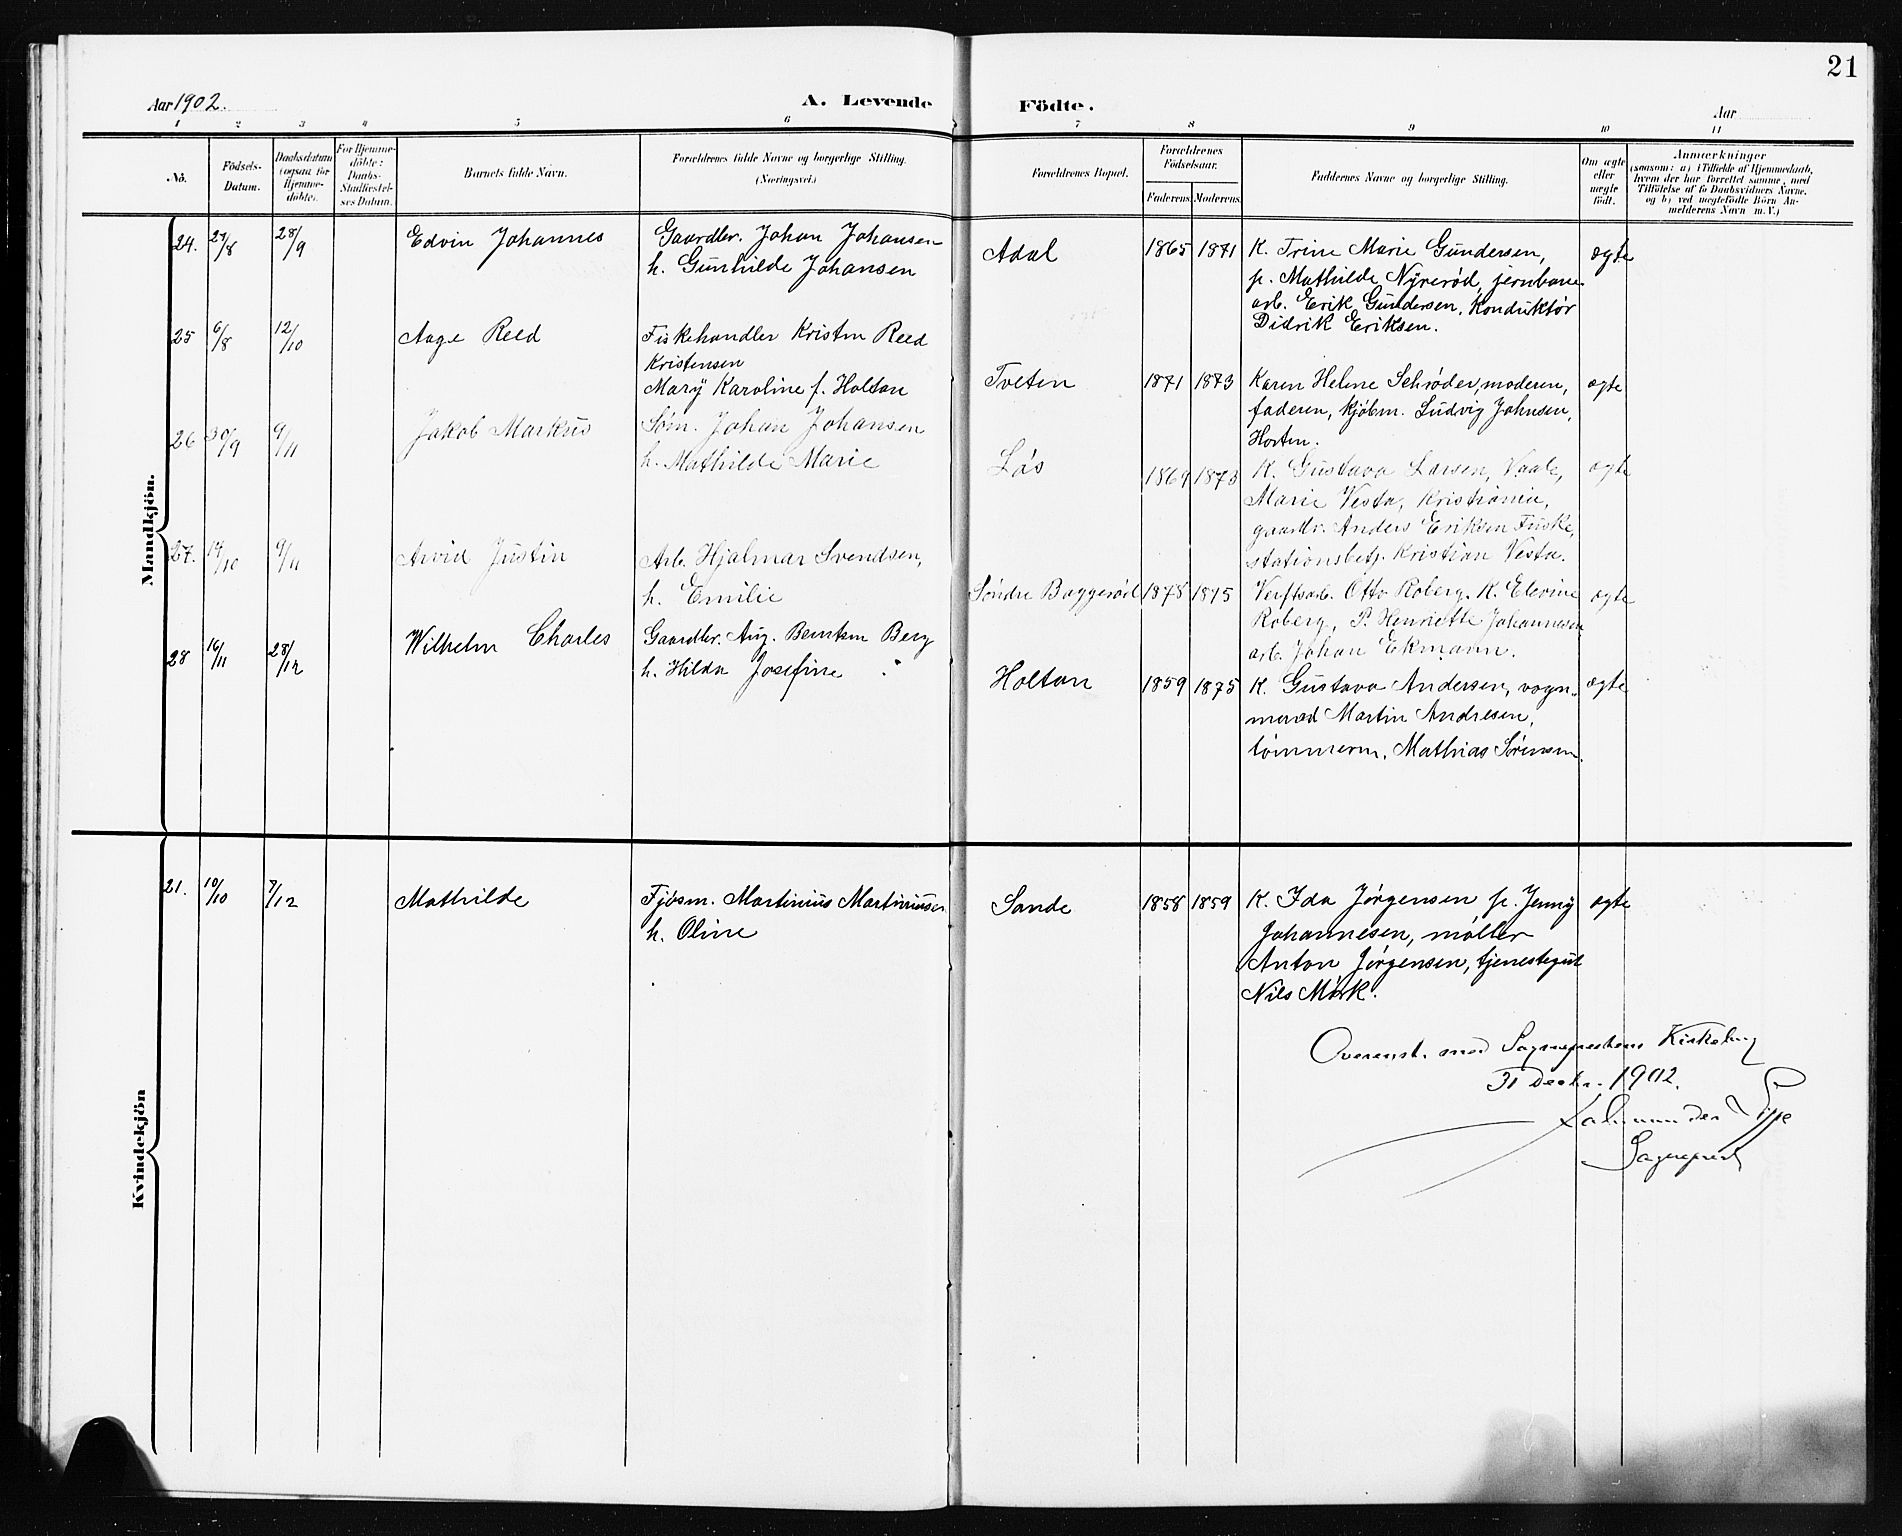 21
Aar 1902.
A. Levende Födte.
Aar
1 2 3 4 5 6 7 8 9 10 11
No.
Födsels-
Datum.
Daabsdatum
(ogsaa for
Hjemme-
döbte).
For Hjemme-
döbte:
Daabs-
Stadfæstel-
ses Datum.
Barnets fulde Navn.
Forældrenes fulde Navne og borgerlige Stilling.
(Næringsvei.)
Forældrenes Bopæl.
Forældrenes
Födselsaar.
Faderens. Moderens.
Faddernes Navne og borgerlige Stilling.
Om ægte
eller
uægte
födt.
Anmærkninger
(saasom: a) i Tilfælde af Hjemmedaab,
hvem der har forrettet samme, med
Tilföielse af to Daabsvidners Navne,
og b) ved uægtefödte Börn An-
melderens Navn m. V.)
Mandkjön.
24. 27/8 28/9 Edvin Johannes
Gaardbr. Johan Johansen
h. Gunhilde Johansen
Adal 1865 1871
K. Trine Marie Gundersen,
p. Mathilde Nyrerød, jernbane-
arb. Erik Gundersen, Konduktør
Didrik Eriksen.
ægte
25 6/8 12/10 Aage Reed
Fiskehandler Kristen Reed
Kristensen
Mary Karoline f. Holtan
Tveten 1871 1873
Karen Helene Schrøder, moderen,
faderen, kjøbm. Ludvig Johnsen,
Horten.
ægte
26 30/9 9/11 Jakob Markus
Søm. Johan Johansen
h. Mathilde Marie
Løs 1869 1873
K. Gustava Larsen, Vaale,
Marie Vesta, Kristiania,
gaardbr. Anders Eriksen Fuske,
stationsbetj. Kristian Vesta.
ægte
27. 14/10 9/11 Arvid Justin
Arb. Hjalmar Svendsen,
h. Emilie
Søndre Baggerød 1878 1875
Verftsarb. Otto Roberg, K. Elevine
Roberg, P. Henriette Johannesen
arb. Johan Ekmann.
ægte
28 16/11 28/12 Wilhelm Charles
Gaardbr. Aug. Berntsen Berg
h. Hilda Josefine "
Holtan 1859 1875
K. Gustava Andersen, vogn-
mand Martin Andresen,
tømmerm. Mathias Sørensen.
ægte
Kvindekjön
21. 10/10 7/12 Mathilde
Fjøsm. Martinius Martiniussen
h. Oline
Sande 1858 1859
K. Ida Jørgensen p. Jenny
Johannesen, møller
Anton Jørgensen, tjenestegut
Nils Mørk.
ægte
Overenst. med Sogneprestens Kirkebog
31 Decbr. 1902.
Sogneprest